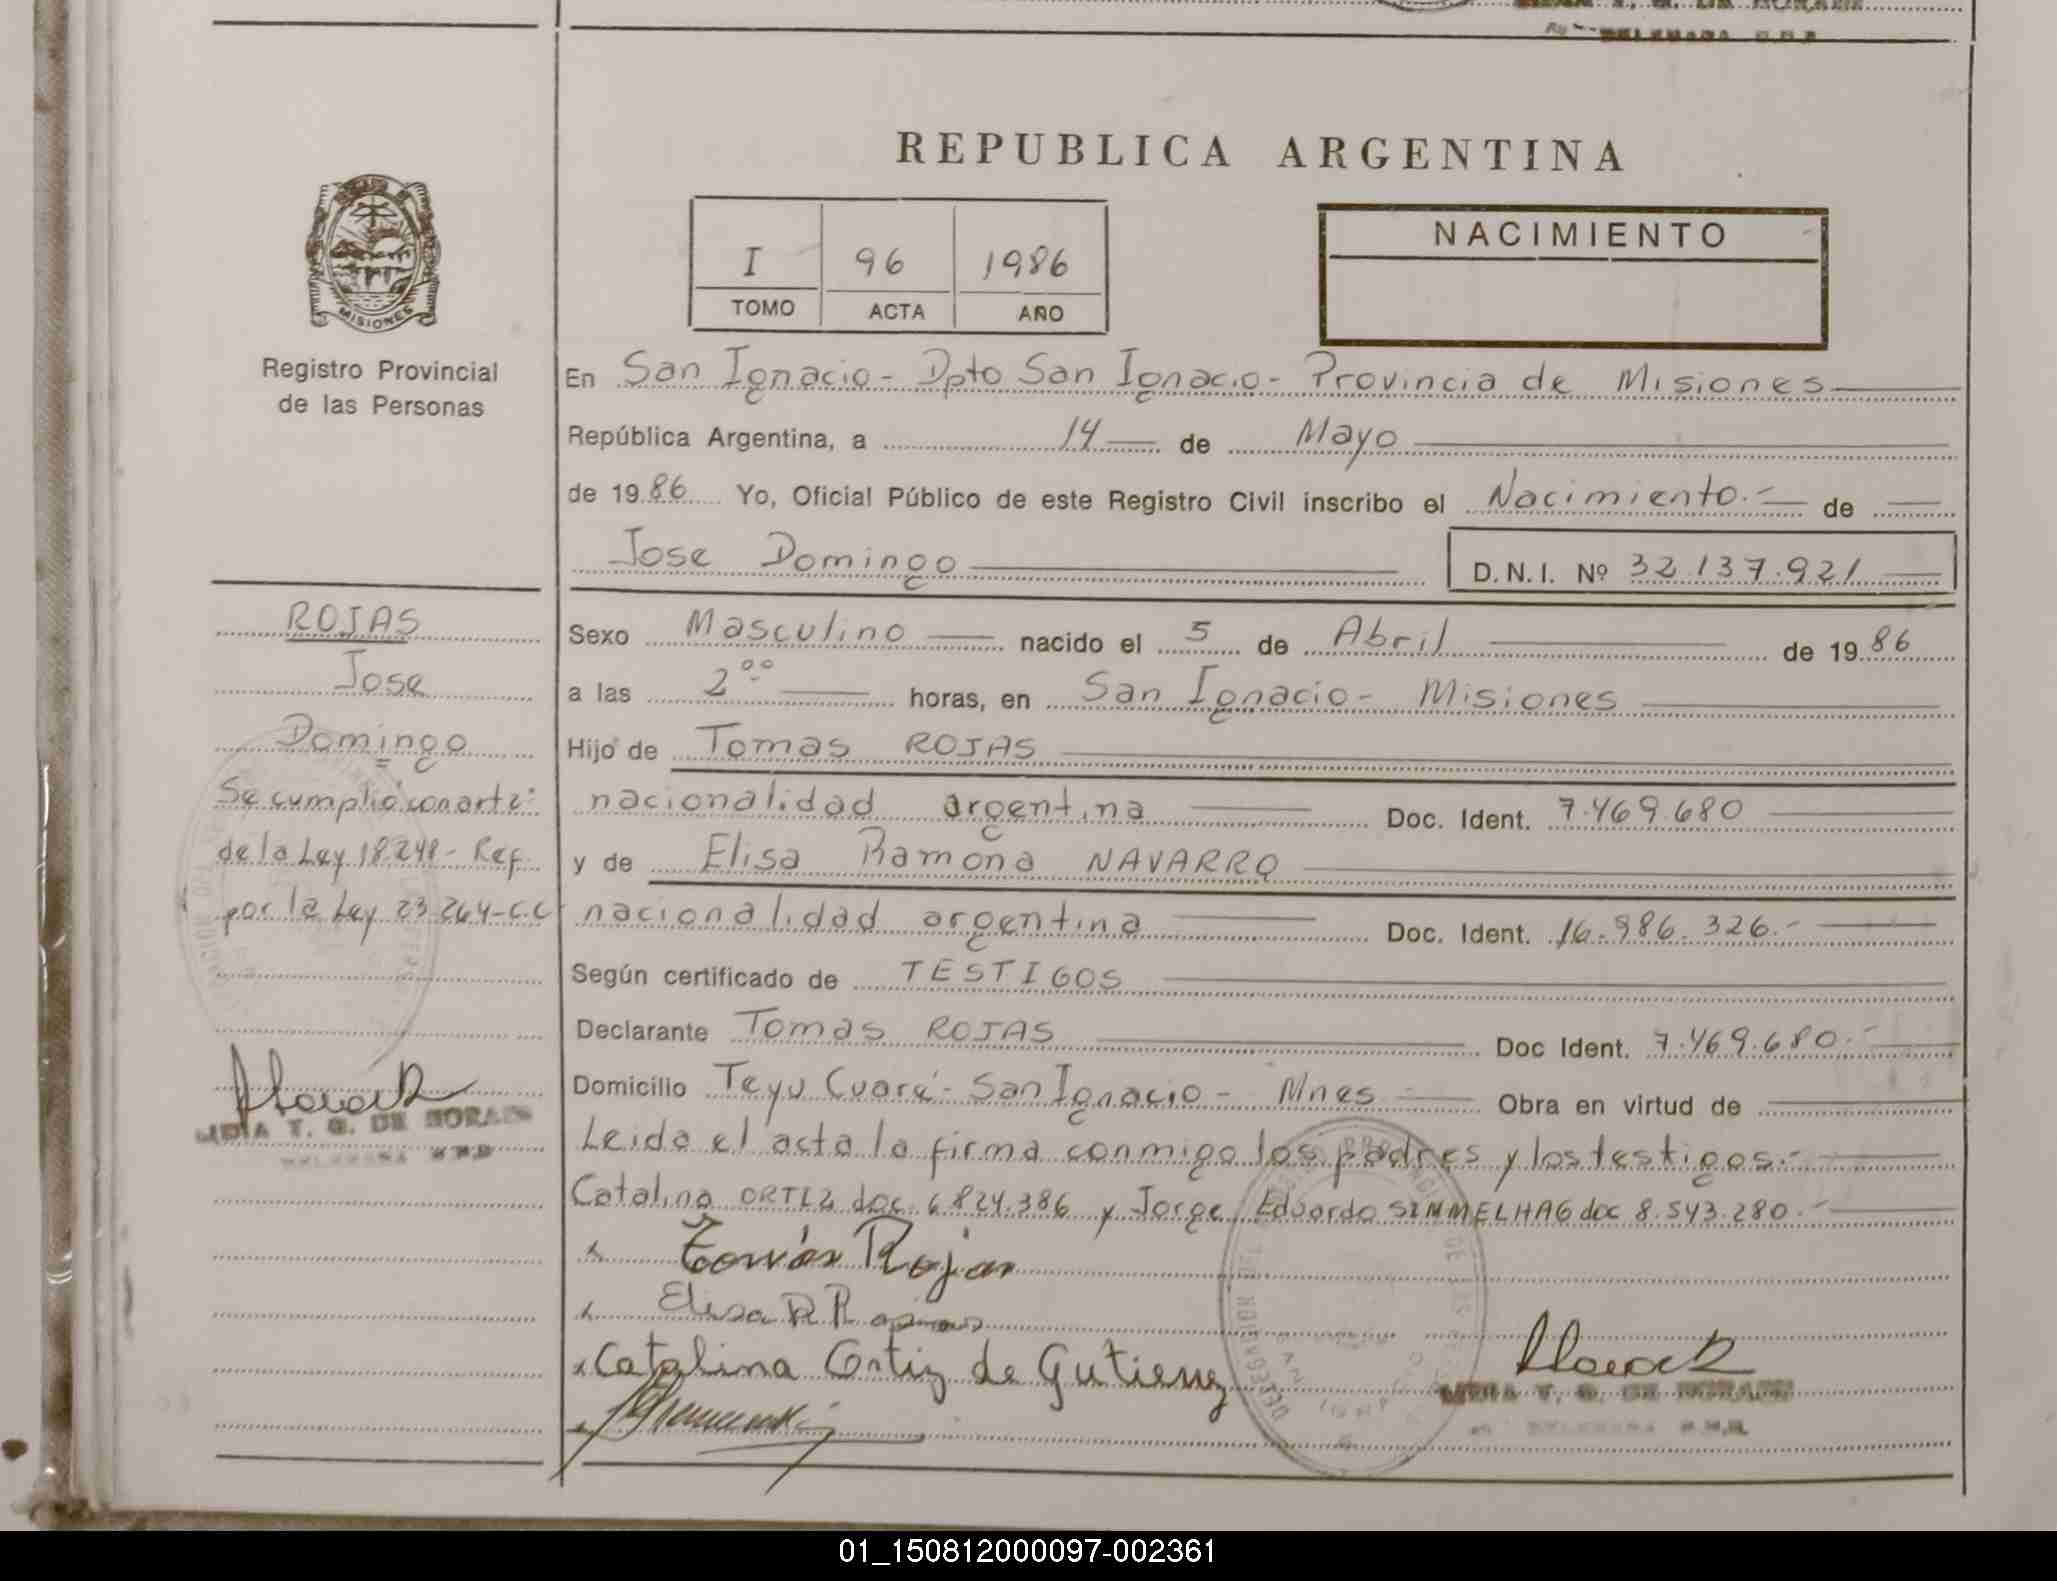 REPUBLICA ARGENTINA
I 96 1986
TOMO ACTA AÑO
NACIMIENTO
MISIONES
Registro Provincial
de las Personas
En San Ignacio - Dpto San Ignacio - Provincia de Misiones
República Argentina, a 14 de Mayo
de 1986 Yo, Oficial Público de este Registro Civil inscribo el Nacimiento.- de
Jose Domingo D.N.I. Nº 32.137.921
ROJAS
Jose
Domingo
Se cumplió con art 2:
de la Ley 18.248 - Ref.
por la Ley 23.264 - C.C
LIDIA T. G. DE MORALES
Sexo Masculino nacido el 5 de Abril de 1986
a las 2 00 horas, en San Ignacio - Misiones
Hijo de Tomas ROJAS
nacionalidad argentina Doc. Ident. 7.469.680
y de Elisa Ramona NAVARRO
nacionalidad argentina Doc. Ident. 16.986.326.-
Según certificado de TESTIGOS
Declarante Tomas ROJAS Doc Ident. 7.469.680.-
Domicilio Teyu Cuaré - San Ignacio - Mnes Obra en virtud de
Leida el acta la firma conmigo los padres y los testigos.-
Catalina ORTIZ doc 6824.386 y Jorge Eduardo SIMMELHAG doc 8.543.280.-
Tomás Rojas
Elisa R R
x Catalina Ortiz de Gutierrez
01_150812000097-002361